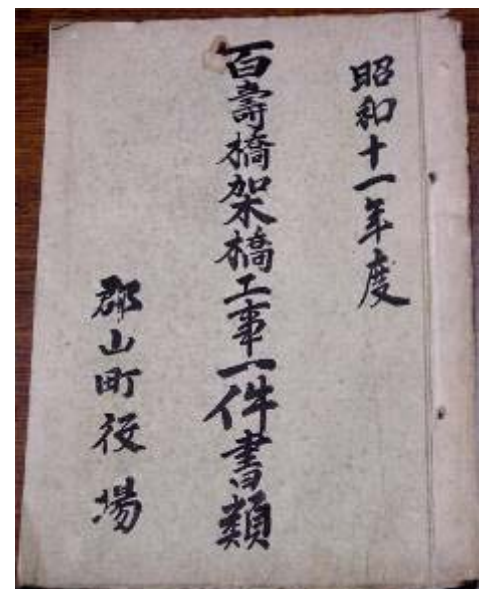 昭和十一年度
百壽橋架橋工事一件書類
郡山町役場